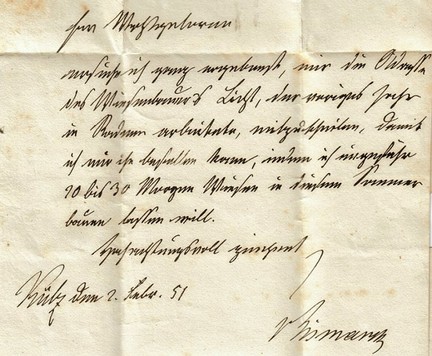 Euer Wohlgeboren
ersuche ich ganz ergebenst, mir die Adresse
des Wiesenbauer's Licht, der voriges Jahr
in Raduen arbeitete, mitzutheilen, damit
ich mir ihn bestellen kann, indem ich ungefähr
20 bis 30 Morgen Wiesen in diesem Sommer
bauen lassen will.
Hochachtungsvoll
Külz den 2. Febr. 51
v Bismarck